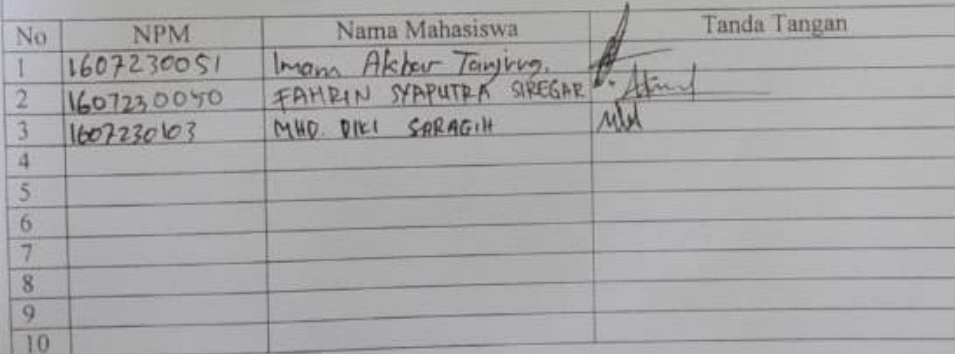 No NPM Nama Mahasiswa Tanda Tangan
1 1607230051 Imam Akbar Tanjung.
2 1607230050 FAHRIN SYAPUTRA SIREGAR
3 1607230103 MHD. DIKI SARAGIH
4
5
6
7
8
9
10